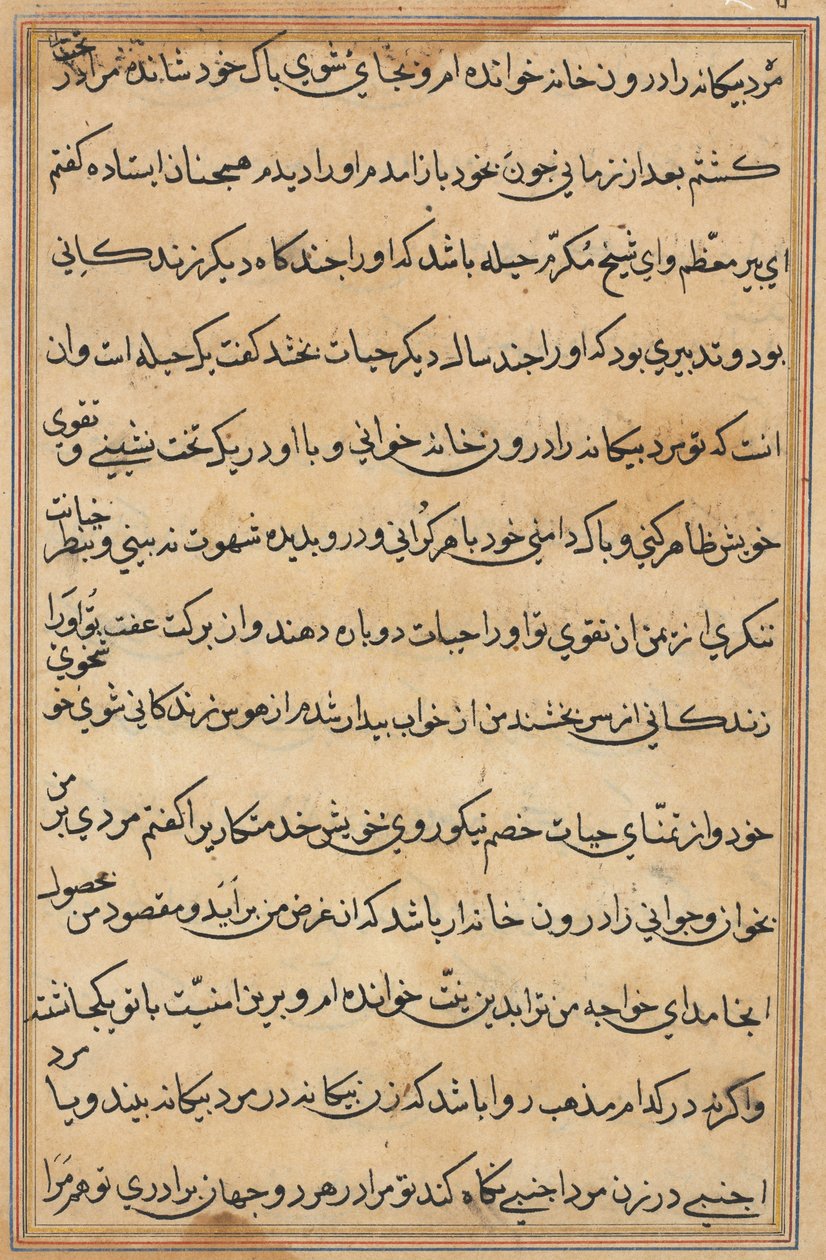 مرد بیکانه را درون خانه خوانده ام و بجای شوي باک خود شانده مرا در تخت
کشتم بعد از زمانی جون بخود باز امدم اورا دیدم همجنان ایستاده کفتم
ای بیر معظّم وای شیخ مُکرّم حیله باشد که اورا جند کاه دیکر زندکانی
بود و تدبیري بود که اورا جند سال دیکر حیات بخشد کفت یک حیله است وان
انست که تو مرد بیکانه را درون خانه خوانی و با او در یک تخت نشینی و تقوی
خویش ظاهر کنی و باک دامنی خود با هر کُرانی و درو بدیده شهوت نه بینی و بنظر خیانت
ننکري از یمن ان تقوي تو اورا حیات دوباره دهند و از برکت عفت تُو اورا
زندکانی از سر بخشند من از خواب بیدار شدم از هوس زندکانی شوي خو
خود و از تمنّای حیات خصم نیکوروي خویش خدمتکاریرا کفتم مردي بر من
بخوان و جوانی را درون خانه ار باشد که ان غرض من بر آید و مقصود من بحصول
انجامد ای خواجه من ترا بدین نیّت خوانده ام و برین امنیّت با تو یکجا نشسته
واکرنه در کدام مذهب روا باشد که زن بیکانه در مرد بیکانه بیند و یا مرد
اجنبی در زن مرد اجنبی نکاه کند تو مرا در هر دو جهان برادري تو هم مَرا